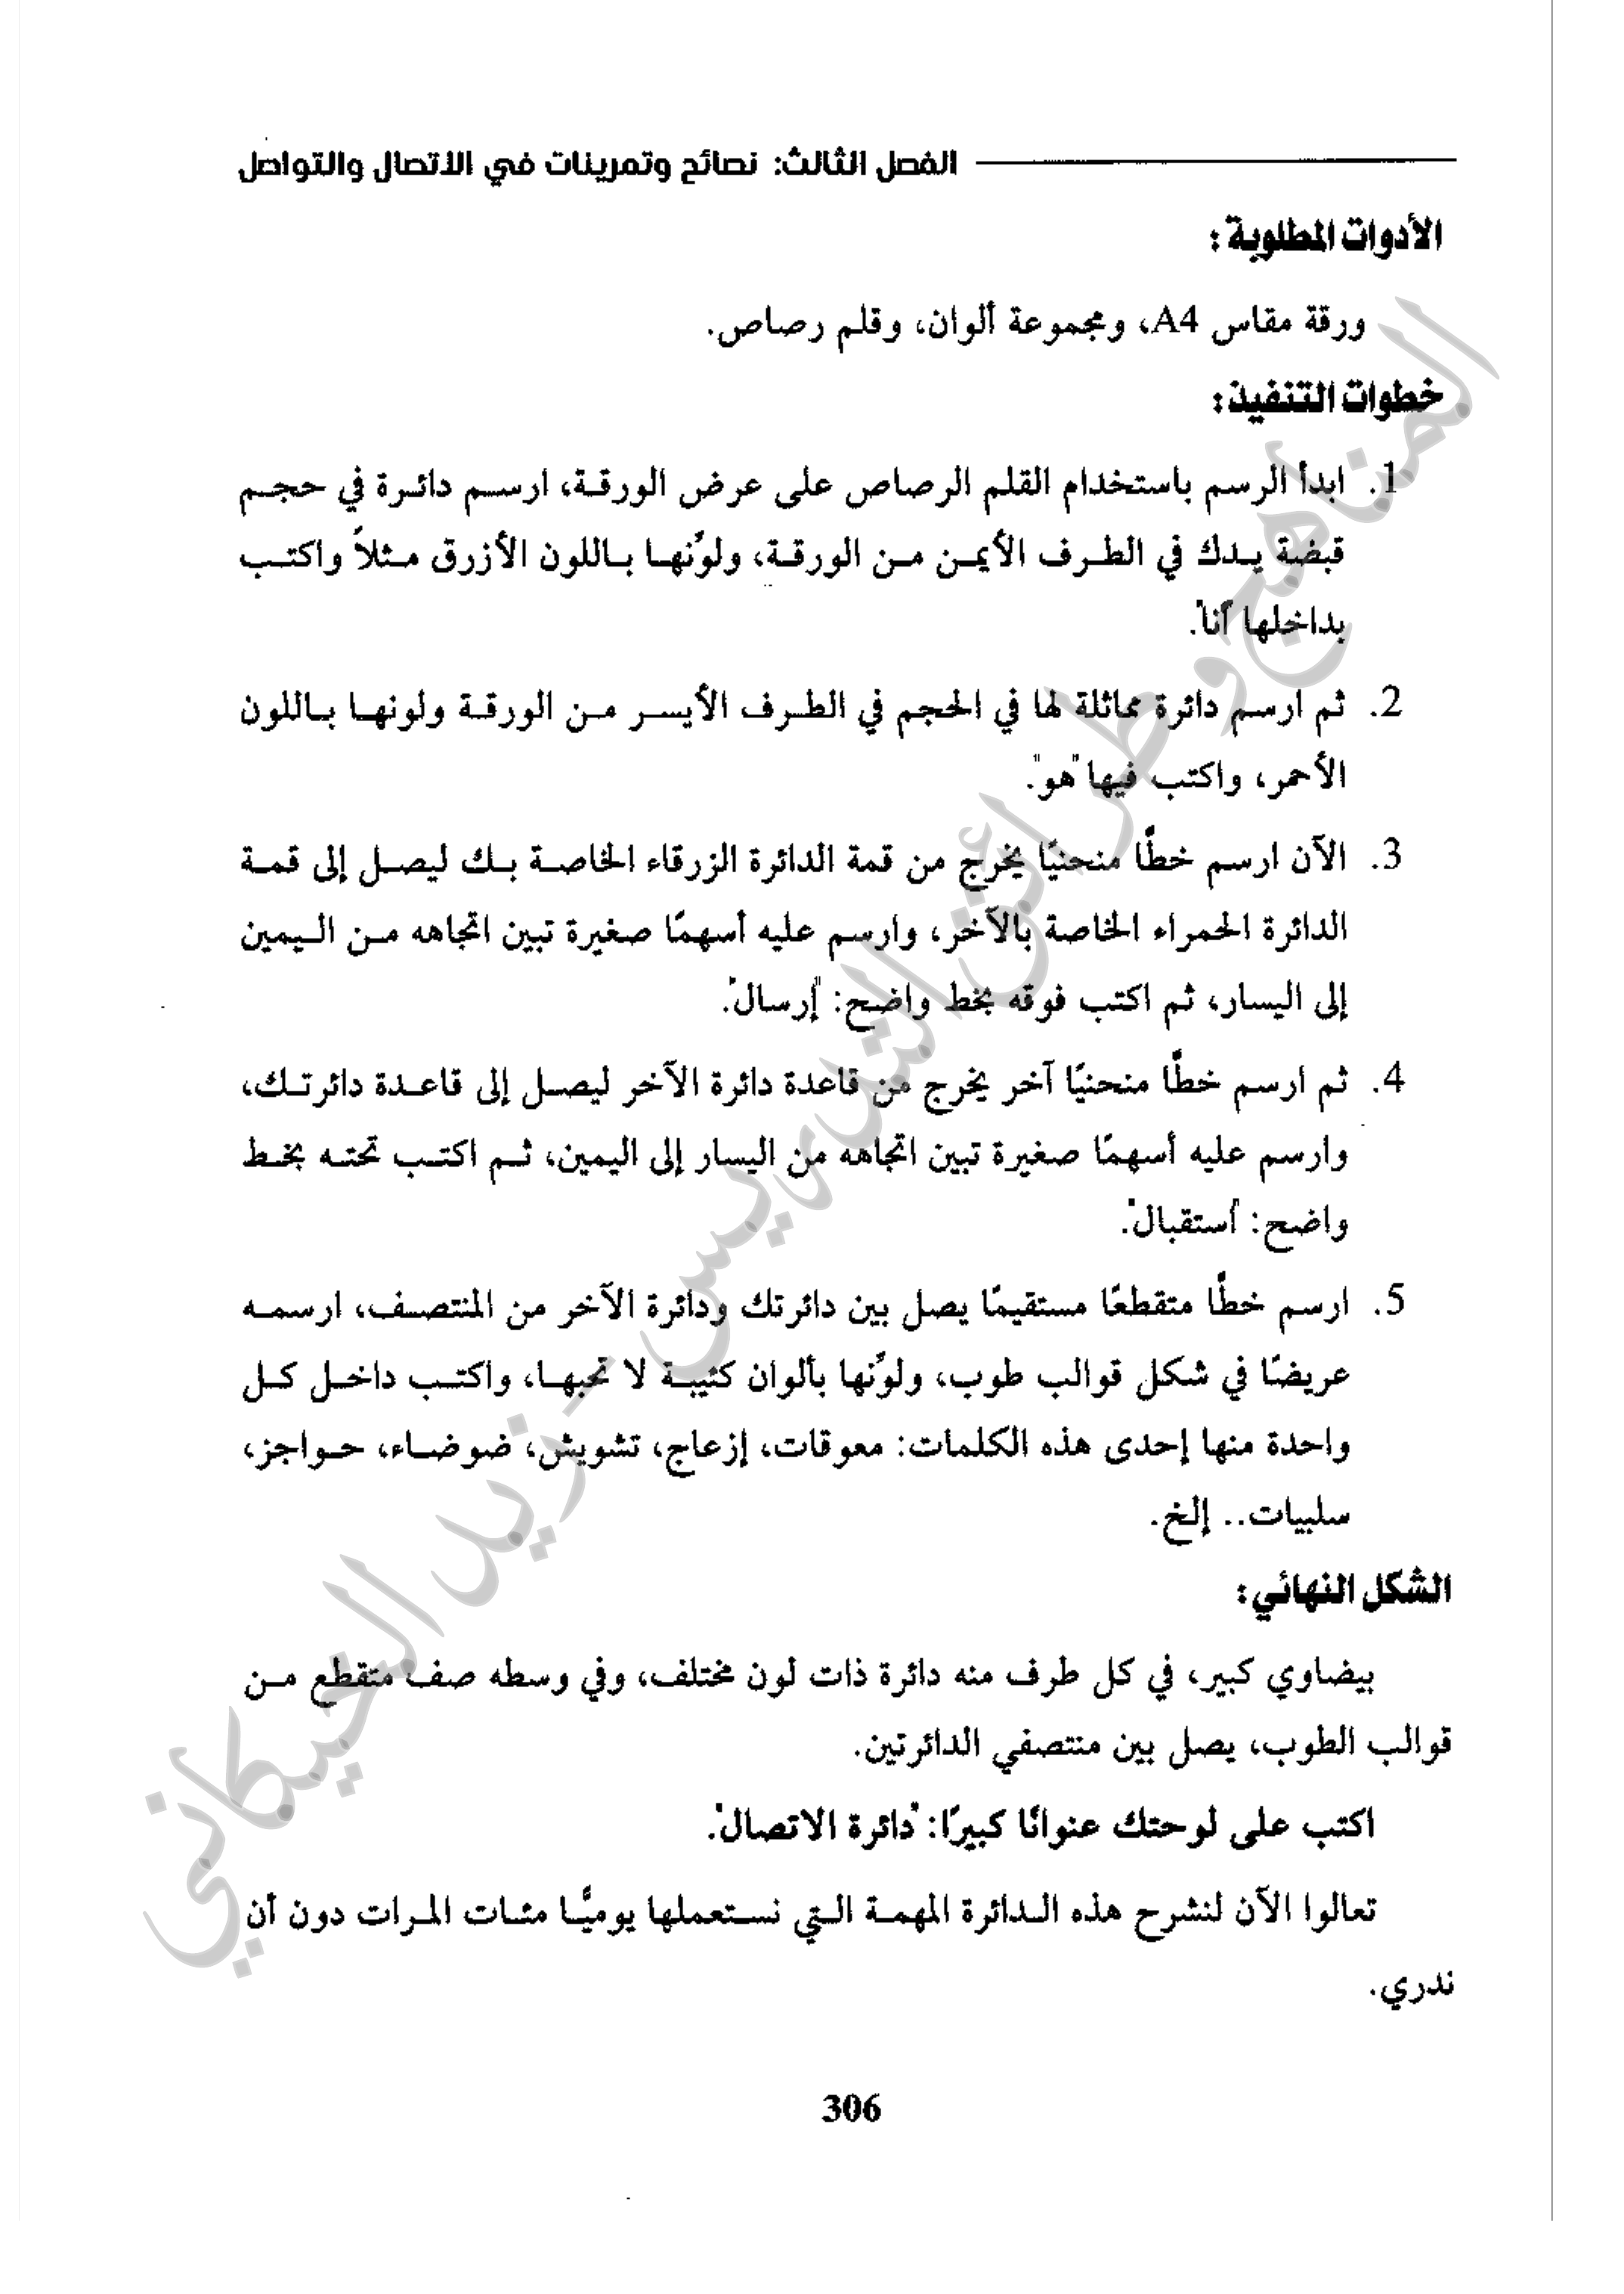 الفصل الثالث: نصائح وتمرينات في الاتصال والتواصل
الأدوات المطلوبة:
ورقة مقاس A4، ومجموعة ألوان، وقلم رصاص.
خطوات التنفيذ:
1. ابدأ الرسم باستخدام القلم الرصاص على عرض الورقة، ارسم دائرة في حجم
قبضة يدك في الطرف الأيمن من الورقة، ولوِّنها باللون الأزرق مثلاً واكتب
بداخلها "أنا".
2. ثم ارسم دائرة مماثلة لها في الحجم في الطرف الأيسر من الورقة ولونها باللون
الأحمر، واكتب فيها "هو".
3. الآن ارسم خطًّا منحنيًا يخرج من قمة الدائرة الزرقاء الخاصة بك ليصل إلى قمة
الدائرة الحمراء الخاصة بالآخر، وارسم عليه أسهمًا صغيرة تبين اتجاهه من اليمين
إلى اليسار، ثم اكتب فوقه بخط واضح: "إرسال".
4. ثم ارسم خطًّا منحنيًا آخر يخرج من قاعدة دائرة الآخر ليصل إلى قاعدة دائرتك،
وارسم عليه أسهمًا صغيرة تبين اتجاهه من اليسار إلى اليمين، ثم اكتب تحته بخط
واضح: "استقبال".
5. ارسم خطًّا متقطعًا مستقيمًا يصل بين دائرتك ودائرة الآخر من المنتصف، ارسمه
عريضًا في شكل قوالب طوب، ولوِّنها بألوان كئيبة لا تحبها، واكتب داخل كل
واحدة منها إحدى هذه الكلمات: معوقات، إزعاج، تشويش، ضوضاء، حواجز،
سلبيات.. إلخ.
الشكل النهائي:
بيضاوي كبير، في كل طرف منه دائرة ذات لون مختلف، وفي وسطه صف متقطع من
قوالب الطوب، يصل بين منتصفي الدائرتين.
اكتب على لوحتك عنوانًا كبيرًا: "دائرة الاتصال".
تعالوا الآن لنشرح هذه الدائرة المهمة التي نستعملها يوميًّا مئات المرات دون أن
ندري.
306
المناهج وطرائق التدريس - زيد الخيكاني